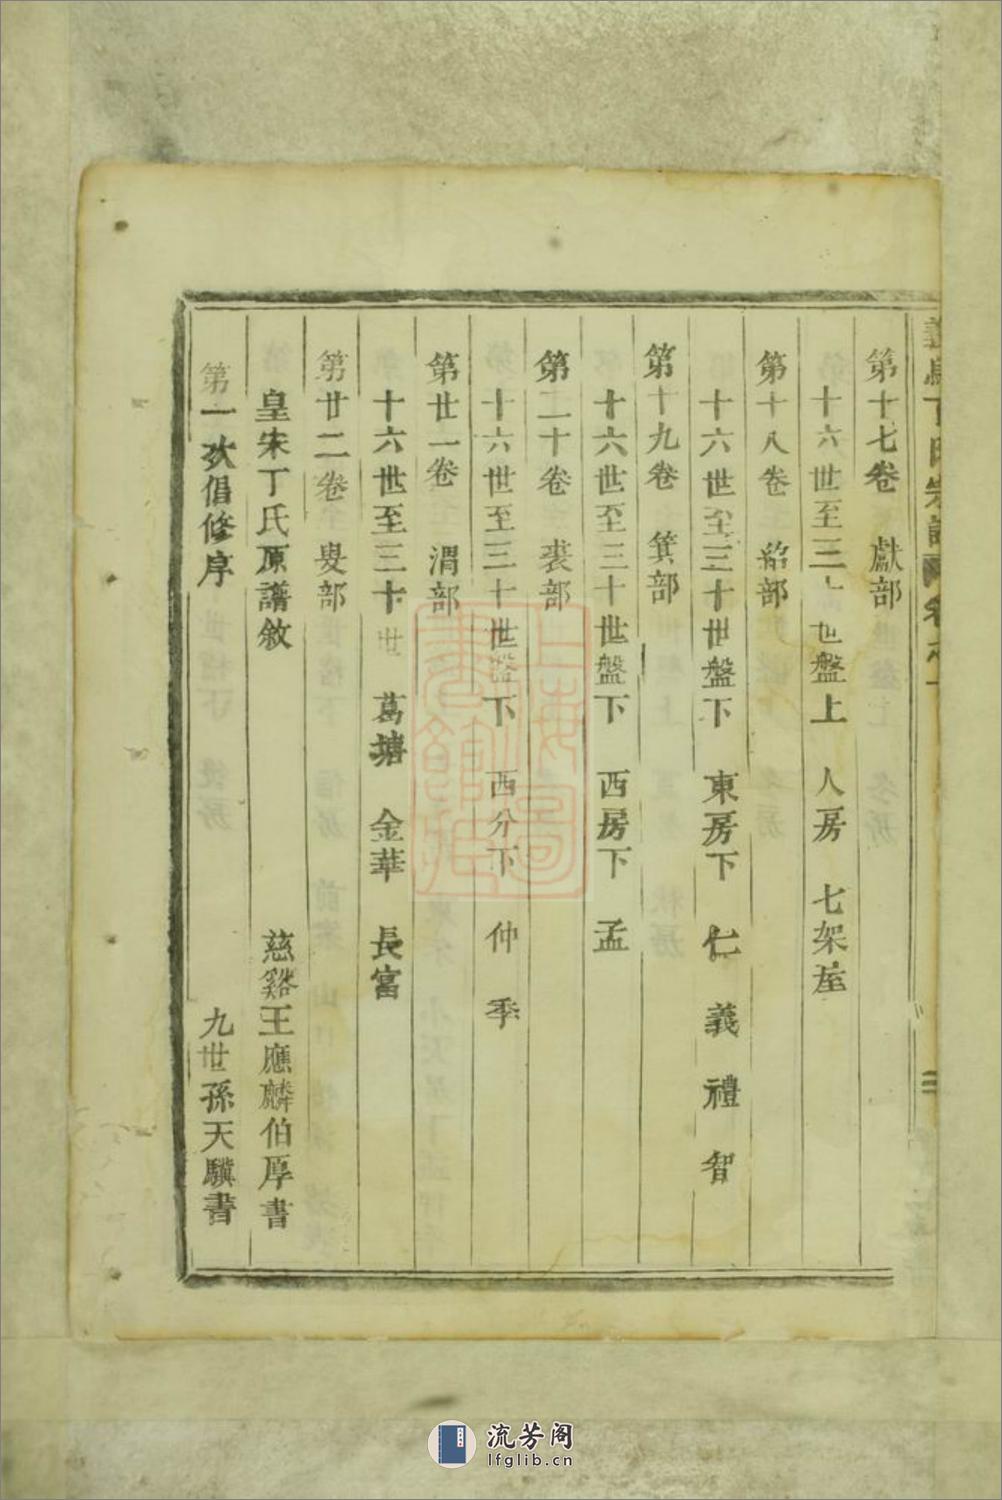 義烏丁氏宗譜 卷之一
第十七卷 獻部
十六世至三十世盤上 人房 七架座
第十八卷 紹部
十六世至三十世盤下 東房下 仁 義 禮 智
第十九卷 箕部
十六世至三十世盤下 西房下 孟
第二十卷 裘部
十六世至三十世盤下 西分下 仲 季
第廿一卷 渭部
十六世至三十世 葛塘 金華 長富
第廿二卷 叟部
皇宋丁氏原譜敘 慈谿王應麟伯厚書
第一次倡修序 九世孫天驥書
上海圖書館藏
流芳阁
lfglib.cn